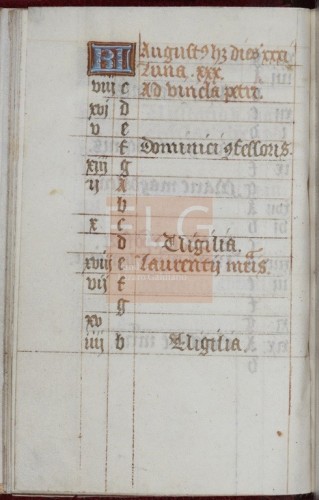 KL Augustꝯ hꝫ dies xxxi
Luna. xxx.
viij c Ad vincla petri.
xvj d
v e
f Dominici ꝯfessoris.
xiij g
ij A
b
x c
d Vigilia.
xviij e Laurentij mris.
vij f
g
xv
iiij b Vigilia.
FLG